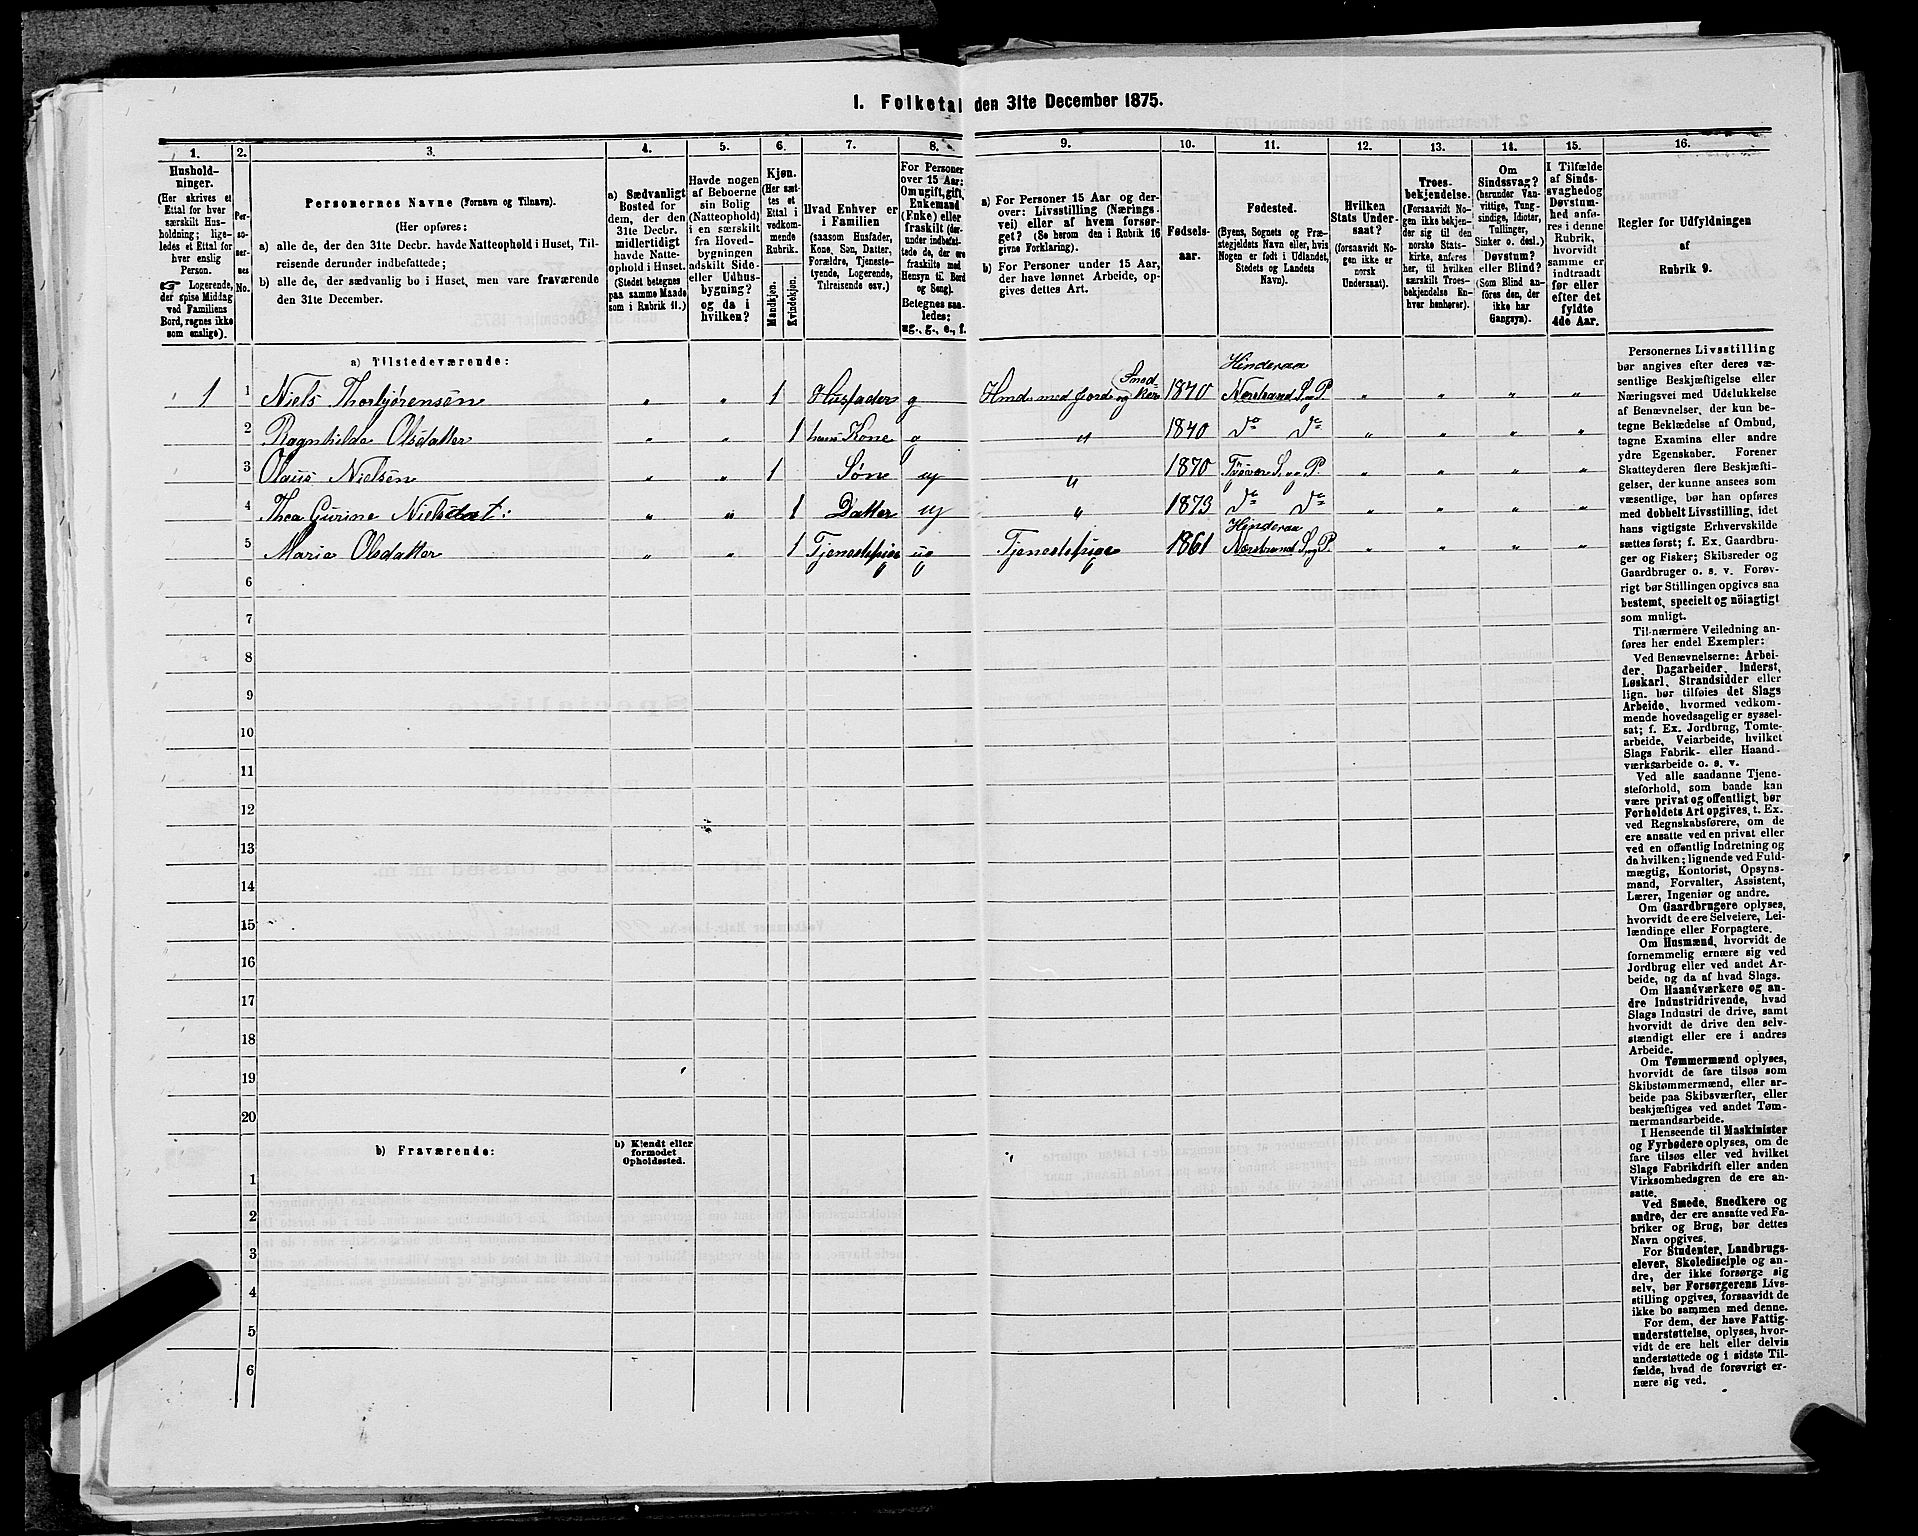 1. Folketal den 31te December 1875.
1.
Hushold-
ninger.
(Her skrives et
Ettal for hver
særskilt Hus-
holdning; lige-
ledes et Ettal for
hver enslig
Person.
☞ Logerende,
der spise Middag
ved Familiens
Bord, regnes ikke
som enslige).
2.
Per-
so-
ner-
nes
No.
3.
Personernes Navne (Fornavn og Tilnavn).
(Her opføres:
a) alle de, der den 31te Decbr. havde Natteophold i Huset, Til-
reisende derunder indbefattede;
b) alle de, der sædvanlig bo i Huset, men vare fraværende
den 31te December.
4.
a) Sædvanligt
Bosted for
dem, der den
31te Decbr.
midlertidigt
havde Natte-
ophold i Huset.
(Stedet betegnes
paa samme Maade
som i Rubrik 11.)
5.
Havde nogen
af Beboerne
sin Bolig
(Natteophold)
i en særskilt
fra Hoved-
bygningen
adskilt Side-
eller Udhus-
bygning?
og da i
hvilken?
6.
Kjøn.
(Her sæt-
tes et
Ettal i
vedkom-
mende
Rubrik.
Mandkjøn.
Kvindekjøn.
7.
Hvad Enhver er
i Familien
(saasom Husfader,
Kone, Søn, Datter,
Forældre, Tjeneste-
tyende, Logerende,
Tilreisende osv.)
8.
For Personer
over 15 Aar:
Om ugift, gift,
Enkemand
(Enke) eller
fraskilt (der-
under indbefat-
tede de, der ere
fraskilte med
Hensyn til Bord
og Seng).
Betegnes saa-
ledes:
ug., g., e., f.
9.
a) For Personer 15 Aar og der-
over: Livsstilling (Nærings-
vei) eller af hvem forsør-
get? (Se herom den i Rubrik 16
givne Forklaring).
b) For Personer under 15 Aar,
der have lønnet Arbeide, op-
gives dettes Art.
10.
Fødsels-
aar.
11.
Fødested.
(Byens, Sognets og Præ-
stegjeldets Navn eller, hvis
Nogen er født i Udlandet,
Stedets og Landets
Navn).
12.
Hvilken
Stats Under-
saat?
(forsaavidt No-
gen ikke er
norsk
Undersaat).
13.
Troes-
bekjendelse.
(Forsaavidt No-
gen ikke bekjen-
der sig til den
norske Stats-
kirke, anføres
her, til hvilken
særskilt Troes-
bekjendelse En-
hver henhører).
14.
Om
Sindssvag?
(herunder Van-
vittige, Tung-
sindige, Idioter,
Tullinger,
Sinker o. desl.)
Døvstum?
eller Blind?
(Som Blind an-
føres den, der
ikke har
Gangsyn).
15.
I Tilfælde
af Sinds-
svaghed og
Døvstum-
hed anfø-
res i denne
Rubrik,
hvorvidt
samme er
indtraadt
før eller
efter det
fyldte
4de Aar.
16.
Regler for Udfyldningen
af
Rubrik 9.
a) Tilstedeværende:
1 1 Niels Thorbjørensen " " 1 Husfader g Hmd med Jord og Smedker 1840 Hinderaa Nerstrand S. og P. " " " "
2 Ragnhilde Olsdatter " " 1 hans Kone g " 1840 do do " " " "
3 Olaus Nielsen " " 1 Søne ug " 1870 Tysvær S. og P. " " " "
4 Thea Gurine Nielsdat: " " 1 Datter ug " 1873 do do " " " "
5 Marie Olsdatter " " 1 Tjenestepige ug Tjenestepige 1861 Hinderaa Nerstrand S. og P. " " " "
6
7
8
9
10
11
12
13
14
15
16
17
18
19
20
b) Fraværende:
b) Kjendt eller
formodet
Opholdssted.
1
2
3
4
5
6
Personernes Livsstilling
bør angives efter deres væ-
sentlige Beskjæftigelse eller
Næringsvei med Udelukkelse
af Benævnelser, der kun be-
tegne Beklædelse af Ombud,
tagne Examina eller andre
ydre Egenskaber. Forener
Skatteyderen flere Beskjæfti-
gelser, der kunne ansees som
væsentlige, bør han opføres
med dobbelt Livsstilling, idet
hans vigtigste Erhvervskilde
sættes først; f. Ex. Gaardbru-
ger og Fisker; Skibsreder og
Gaardbruger o. s. v. Forøv-
rigt bør Stillingen opgives saa
bestemt, specielt og nöiagtigt
som muligt.
Til nærmere Veiledning an-
føres her endel Exempler:
Ved Benævnelserne: Arbei-
der, Dagarbeider, Inderst,
Løskarl, Strandsidder eller
lign. bør tilføies det Slags
Arbeide, hvormed vedkom-
mende hovedsagelig er syssel-
sat; f. Ex. Jordbrug, Tomte-
arbeide, Veiarbeide, hvilket
Slags Fabrik- eller Haand-
værksarbeide o. s. v.
Ved alle saadanne Tjene-
steforhold, som baade kan
være privat og offentligt, bør
Forholdets Art opgives, t. Ex.
ved Regnskabsførere, om de
ere ansatte ved en privat eller
ved en offentlig Indretning og
da hvilken; lignende ved Fuld-
mægtig, Kontorist, Opsyns-
mand, Forvalter, Assistent,
Lærer, Ingeniør og andre.
Om Gaardbrugere oplyses,
hvorvidt de ere Selveiere, Lei-
lændinge eller Forpagtere.
Om Husmænd, hvorvidt de
fornemmelig ernære sig ved
Jordbrug eller ved andet Ar-
beide, og da af hvad Slags.
Om Haandværkere og an-
dre Industridrivende, hvad
Slags Industri de drive, samt
hvorvidt de drive den selv-
stændigt eller ere i andres
Arbeide.
Om Tømmermænd oplyses,
hvorvidt de fare tilsøs som
Skibstømmermænd, eller ar-
beide paa Skibsværfter, eller
beskjæftiges ved andet Tøm-
mermandsarbeide.
I Henseende til Maskinister
og Fyrbødere oplyses, om de
fare tilsøs eller ved hvilket
Slags Fabrikdrift eller anden
Virksomhedsgren de ere an-
satte.
Ved Smede, Snedkere og
andre, der ere ansatte ved Fa-
briker og Brug, bør dettes
Navn opgives.
For Studenter, Landbrugs-
elever, Skoledisciple og an-
dre, der ikke forsørge sig
selv, bør Forsørgerens Livs-
stilling opgives, forsaavidt de
ikke bo sammen med denne.
For dem, der have Fattig-
understøttelse, oplyses, hvor-
vidt de ere helt eller delvis
understøttede og i sidste Til-
fælde, hvad de forøvrigt er-
nære sig ved.